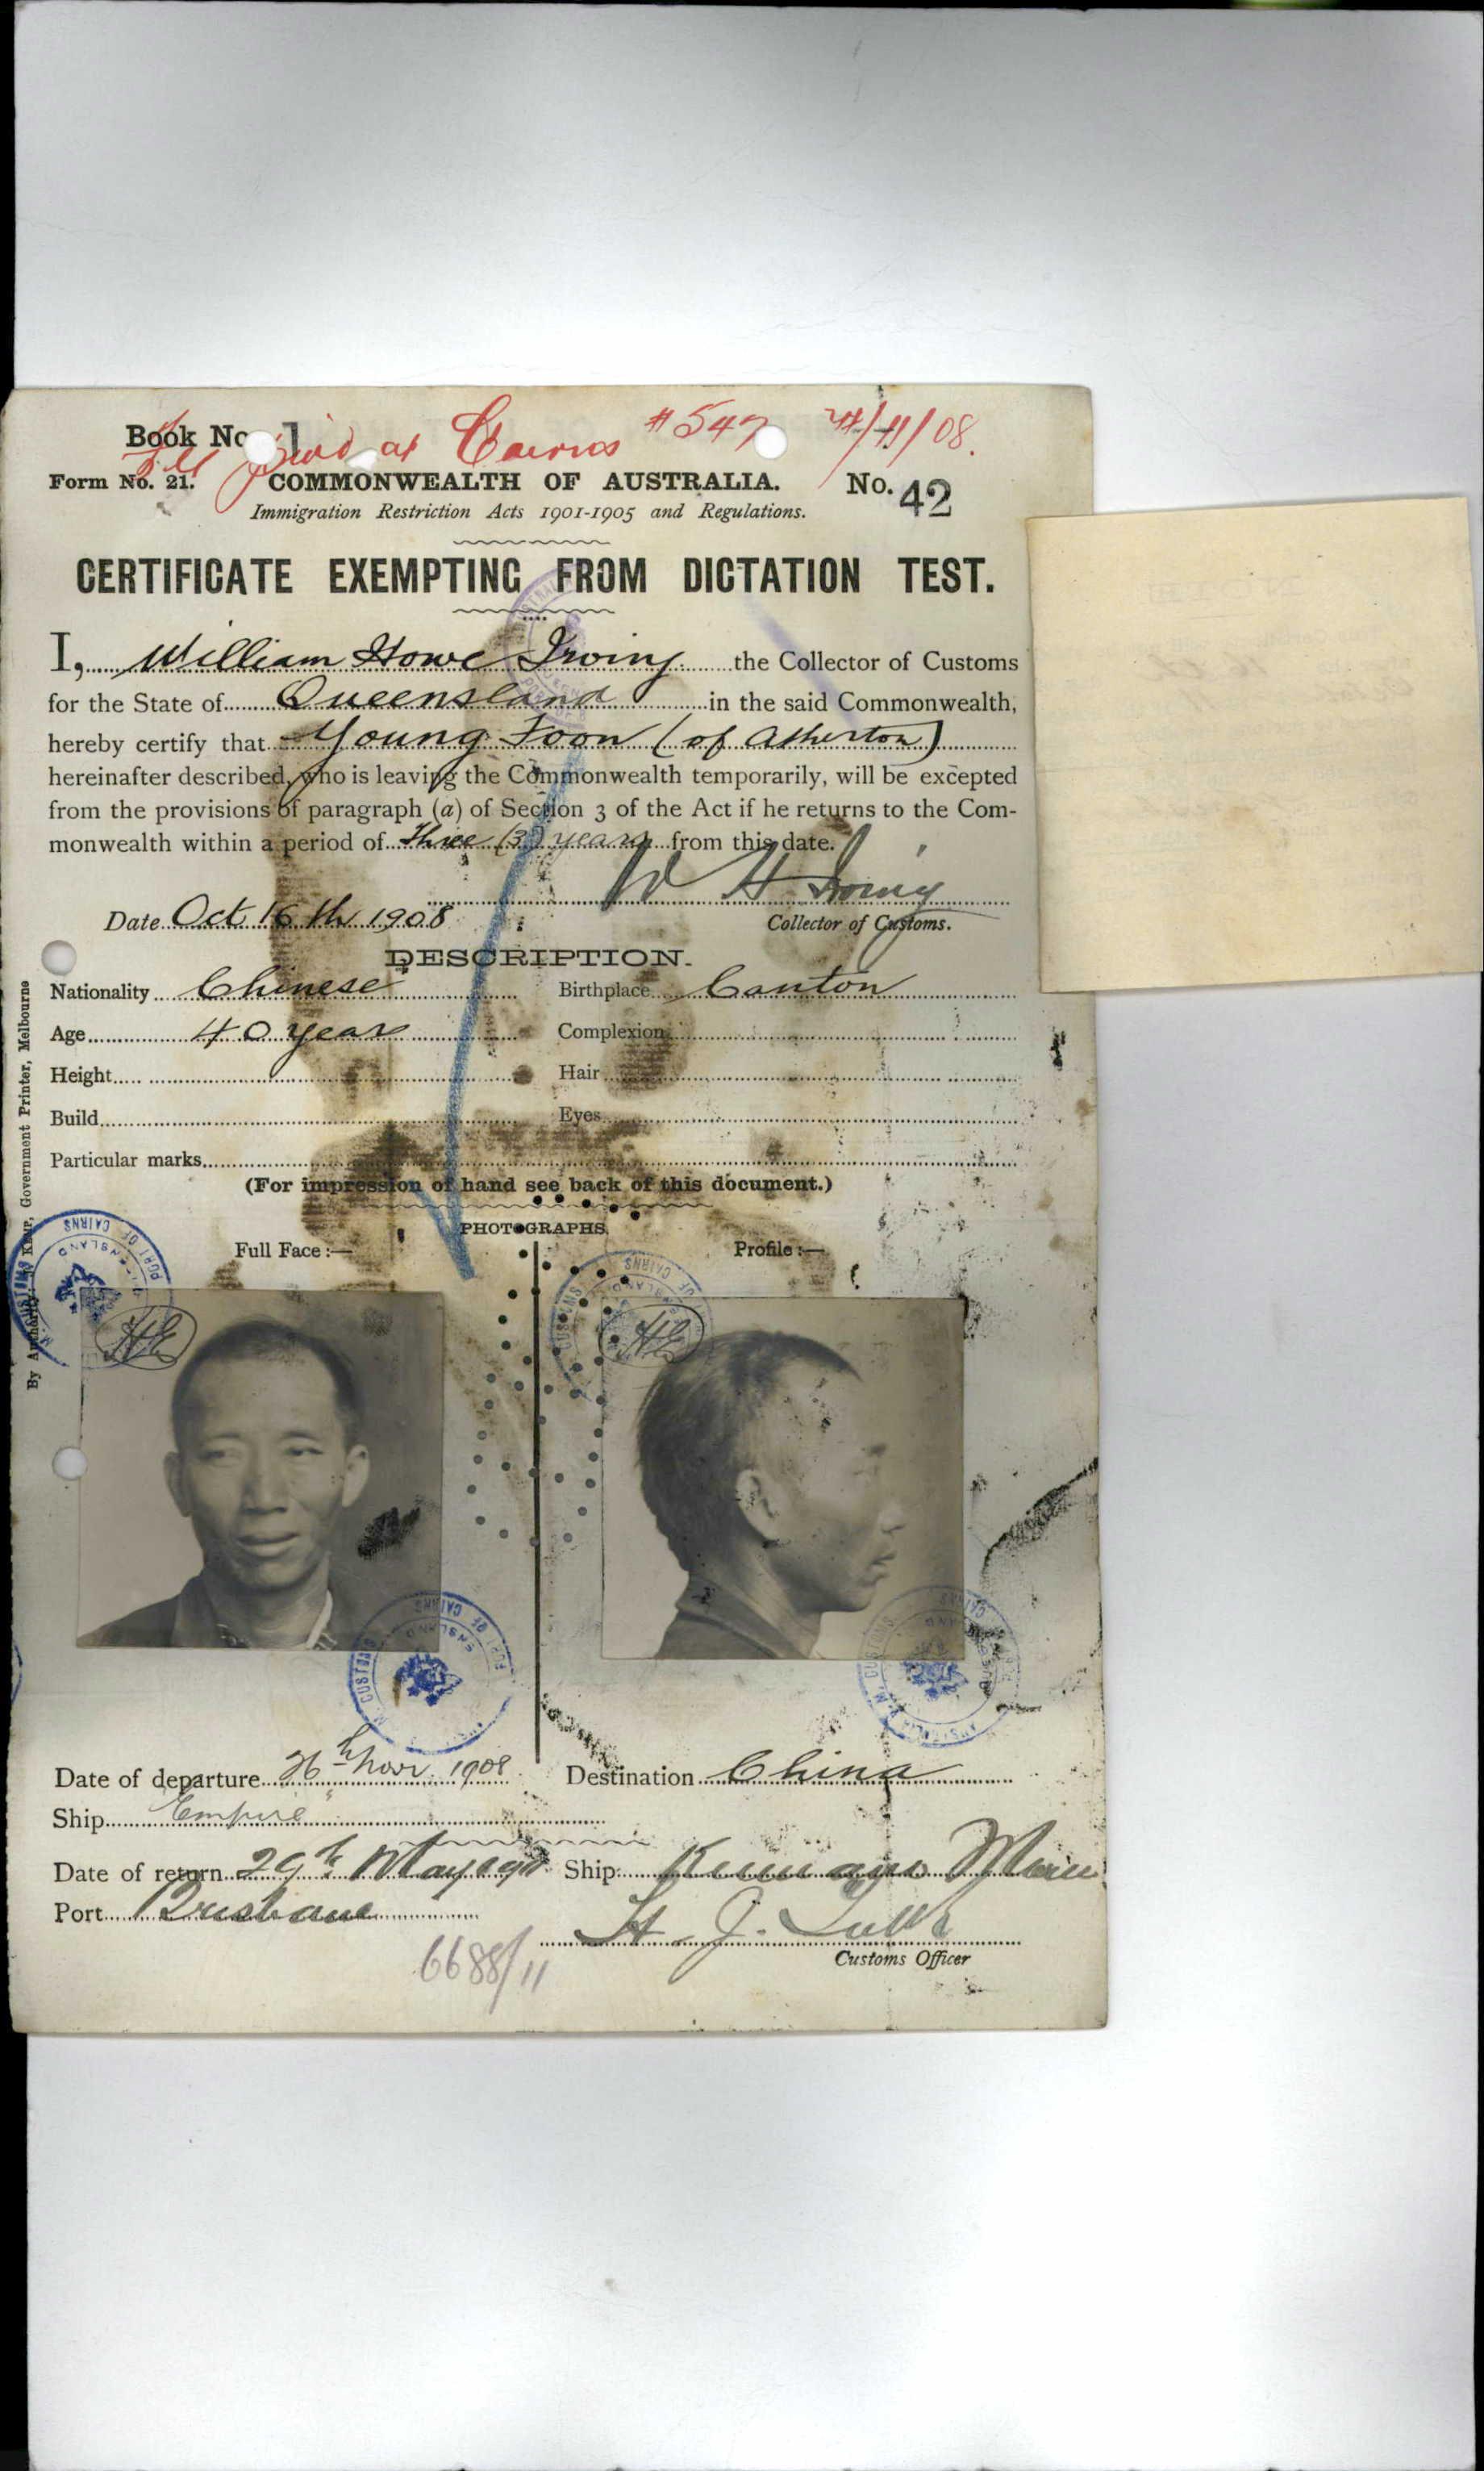 Book No 1
Paid at Cairns # 547 24/11/08.
Form No. 21. COMMONWEALTH OF AUSTRALIA. No. 42
Immigration Restriction Acts 1901-1905 and Regulations.
CERTIFICATE EXEMPTING FROM DICTATION TEST.
I, William Howe Irving the Collector of Customs
for the State of Queensland in the said Commonwealth,
hereby certify that Young Foon (of Atherton)
hereinafter described, who is leaving the Commonwealth temporarily, will be excepted
from the provisions of paragraph (a) of Section 3 of the Act if he returns to the Com-
monwealth within a period of three (3) years from this date.
W H Irving
Date Oct 16th 1908 Collector of Customs.
DESCRIPTION.
Nationality Chinese Birthplace Canton
Age 40 years Complexion
Height Hair
Build Eyes
Particular marks
(For impression of hand see back of this document.)
PHOTOGRAPHS.
Full Face :— Profile :—
HE HE
PORT OF CAIRNS
Date of departure 26th Novr. 1908 Destination China
Ship "Empire"
Date of return 29th May Ship Kumano Maru
Port Brisbane
H. J.
Customs Officer
6688/11
Government Printer, Melbourne